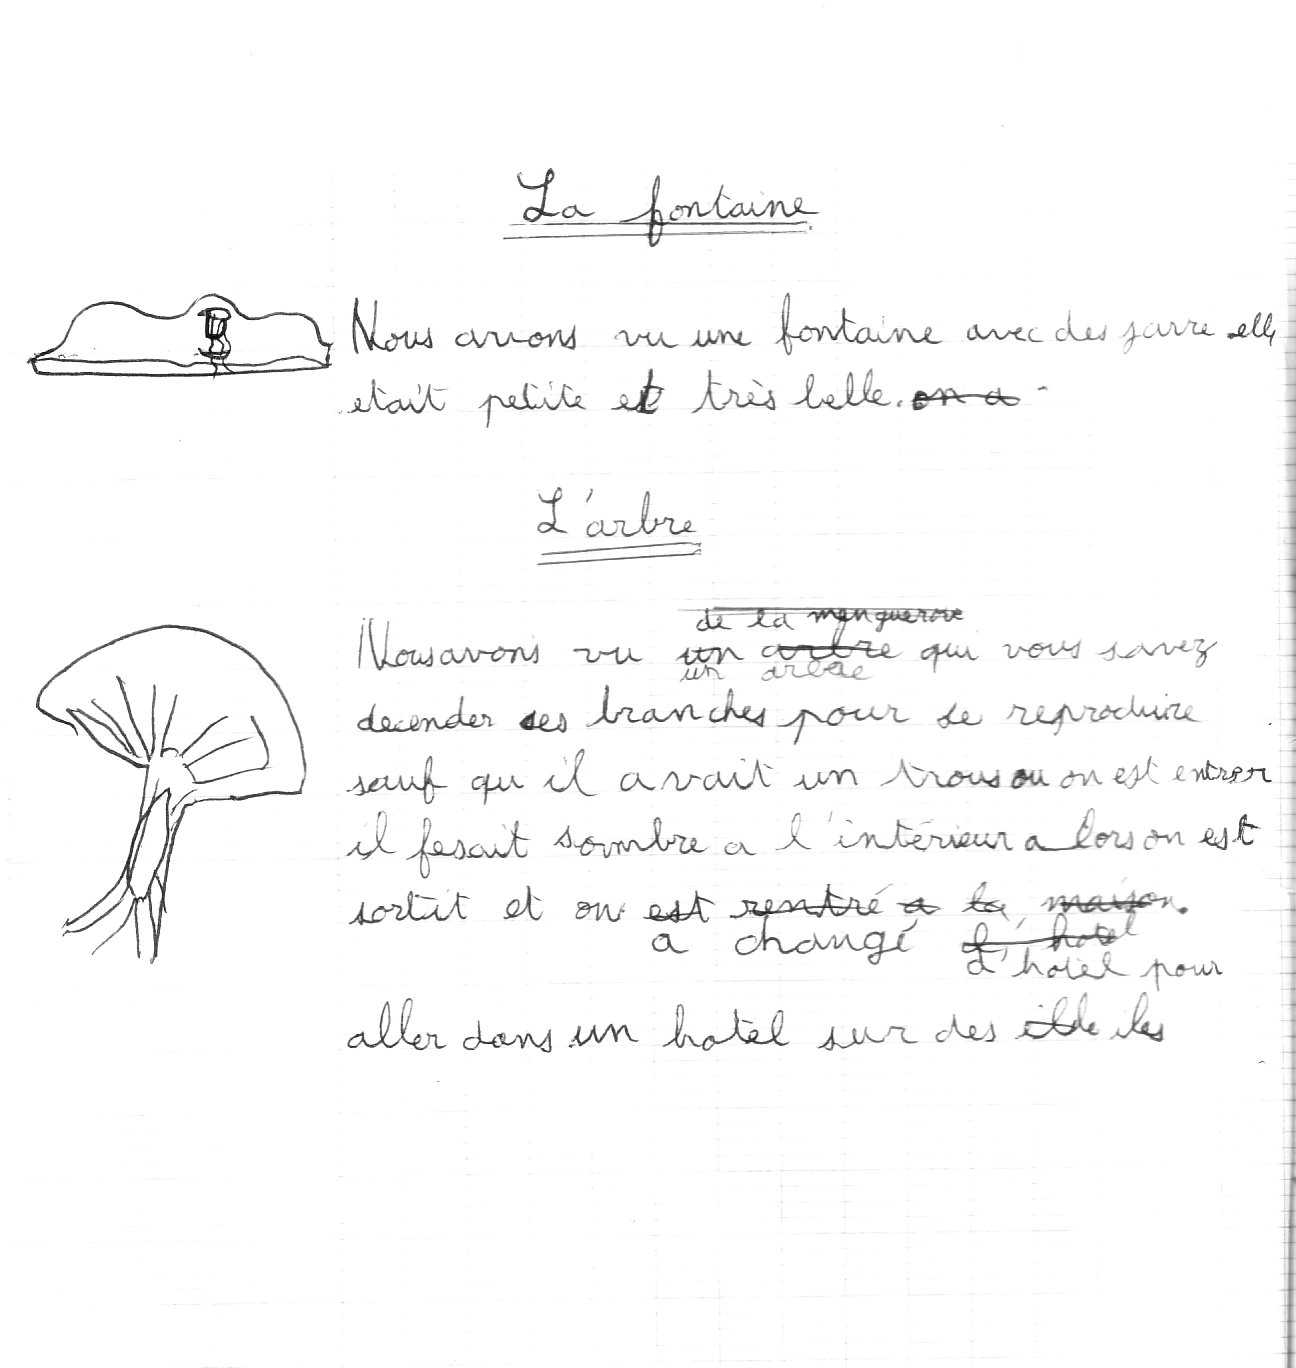 La fontaine
Nous avons vu une fontaine avec des jarre elle
etait petite et très belle. on a
L'arbre
de la manguerove
Nous avons vu un arbre qui vous savez
un arbre
decender ses branches pour se reproduire
sauf qu il avait un trous ou on est entrer
il fesait sombre a l'intérieur alors on est
sortit et on est rentré a la maison.
a changé l'hotel
d'hotel pour
aller dans un hotel sur des iles